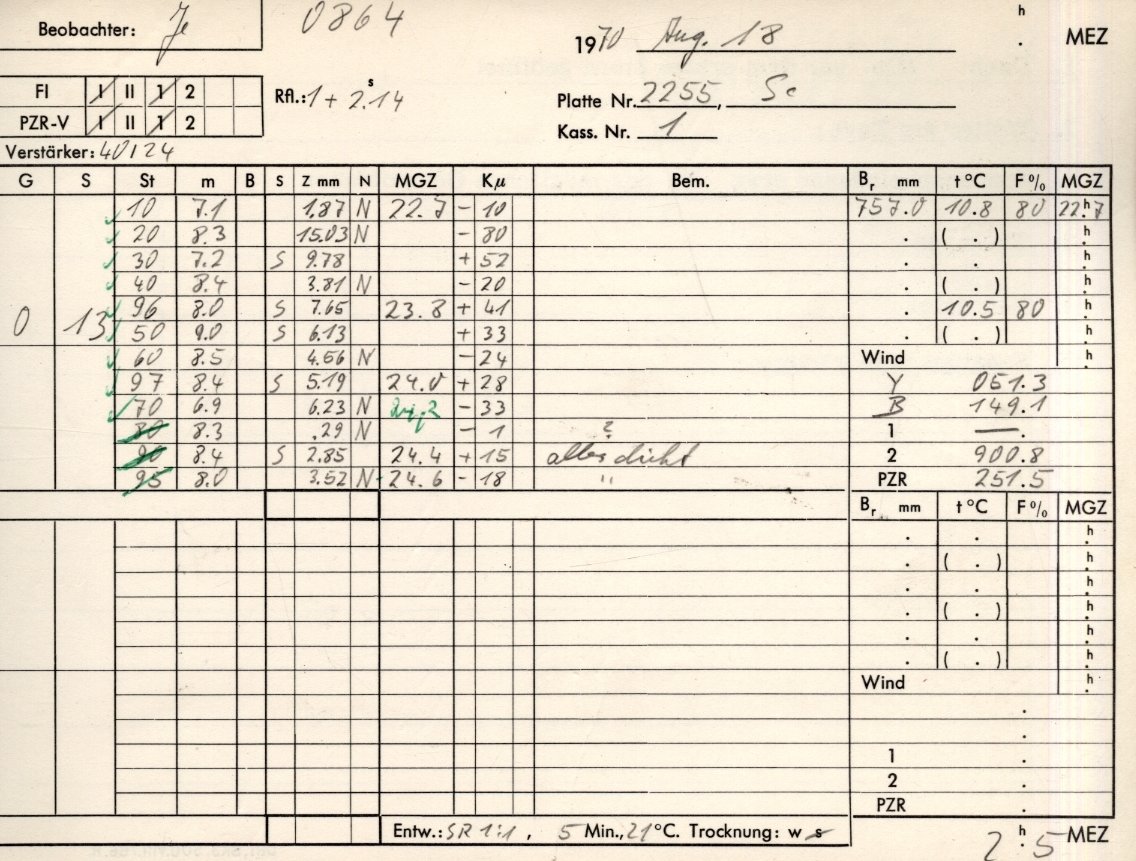 Beobachter: Je 0864 h
1970 Aug. 18 . MEZ
FI I II 1 2 Rfl.: 1 + 2.14 s
Platte Nr. 2255, Se
PZR-V I II 1 2
Kass. Nr. 1
Verstärker: 40/24
G S St m B S Z mm N MGZ Kμ Bem. Br mm t°C F% MGZ
10 7.1 1.87 N 22.7 - 10 757.0 10.8 80 22.h7
20 8.3 15.03 N - 80 . ( . ) h.
30 7.2 S 9.78 + 52 . . h.
40 8.4 3.81 N - 20 . ( . ) h.
96 8.0 S 7.65 23.8 + 41 . 10.5 80 h.
0 13 50 9.0 S 6.13 + 33 . ( . ) h.
60 8.5 4.56 N - 24 Wind h.
97 8.4 S 5.19 24.0 + 28 Y 051.3
70 6.9 6.23 N - 33 B 149.1
80 8.3 .29 N - 1 ? 1 — .
90 8.4 S 2.85 24.4 + 15 alles dicht 2 900.8
95 8.0 3.52 N 24.6 - 18 " PZR 251.5
Br mm t°C F% MGZ
. . h.
. ( . ) h.
. . h.
. ( . ) h.
. . h.
. ( . ) h.
Wind h.
.
.
1 .
2 .
PZR .
Entw.: SR 1:1, 5 Min., 21°C. Trocknung: w s
2 h. 5 MEZ